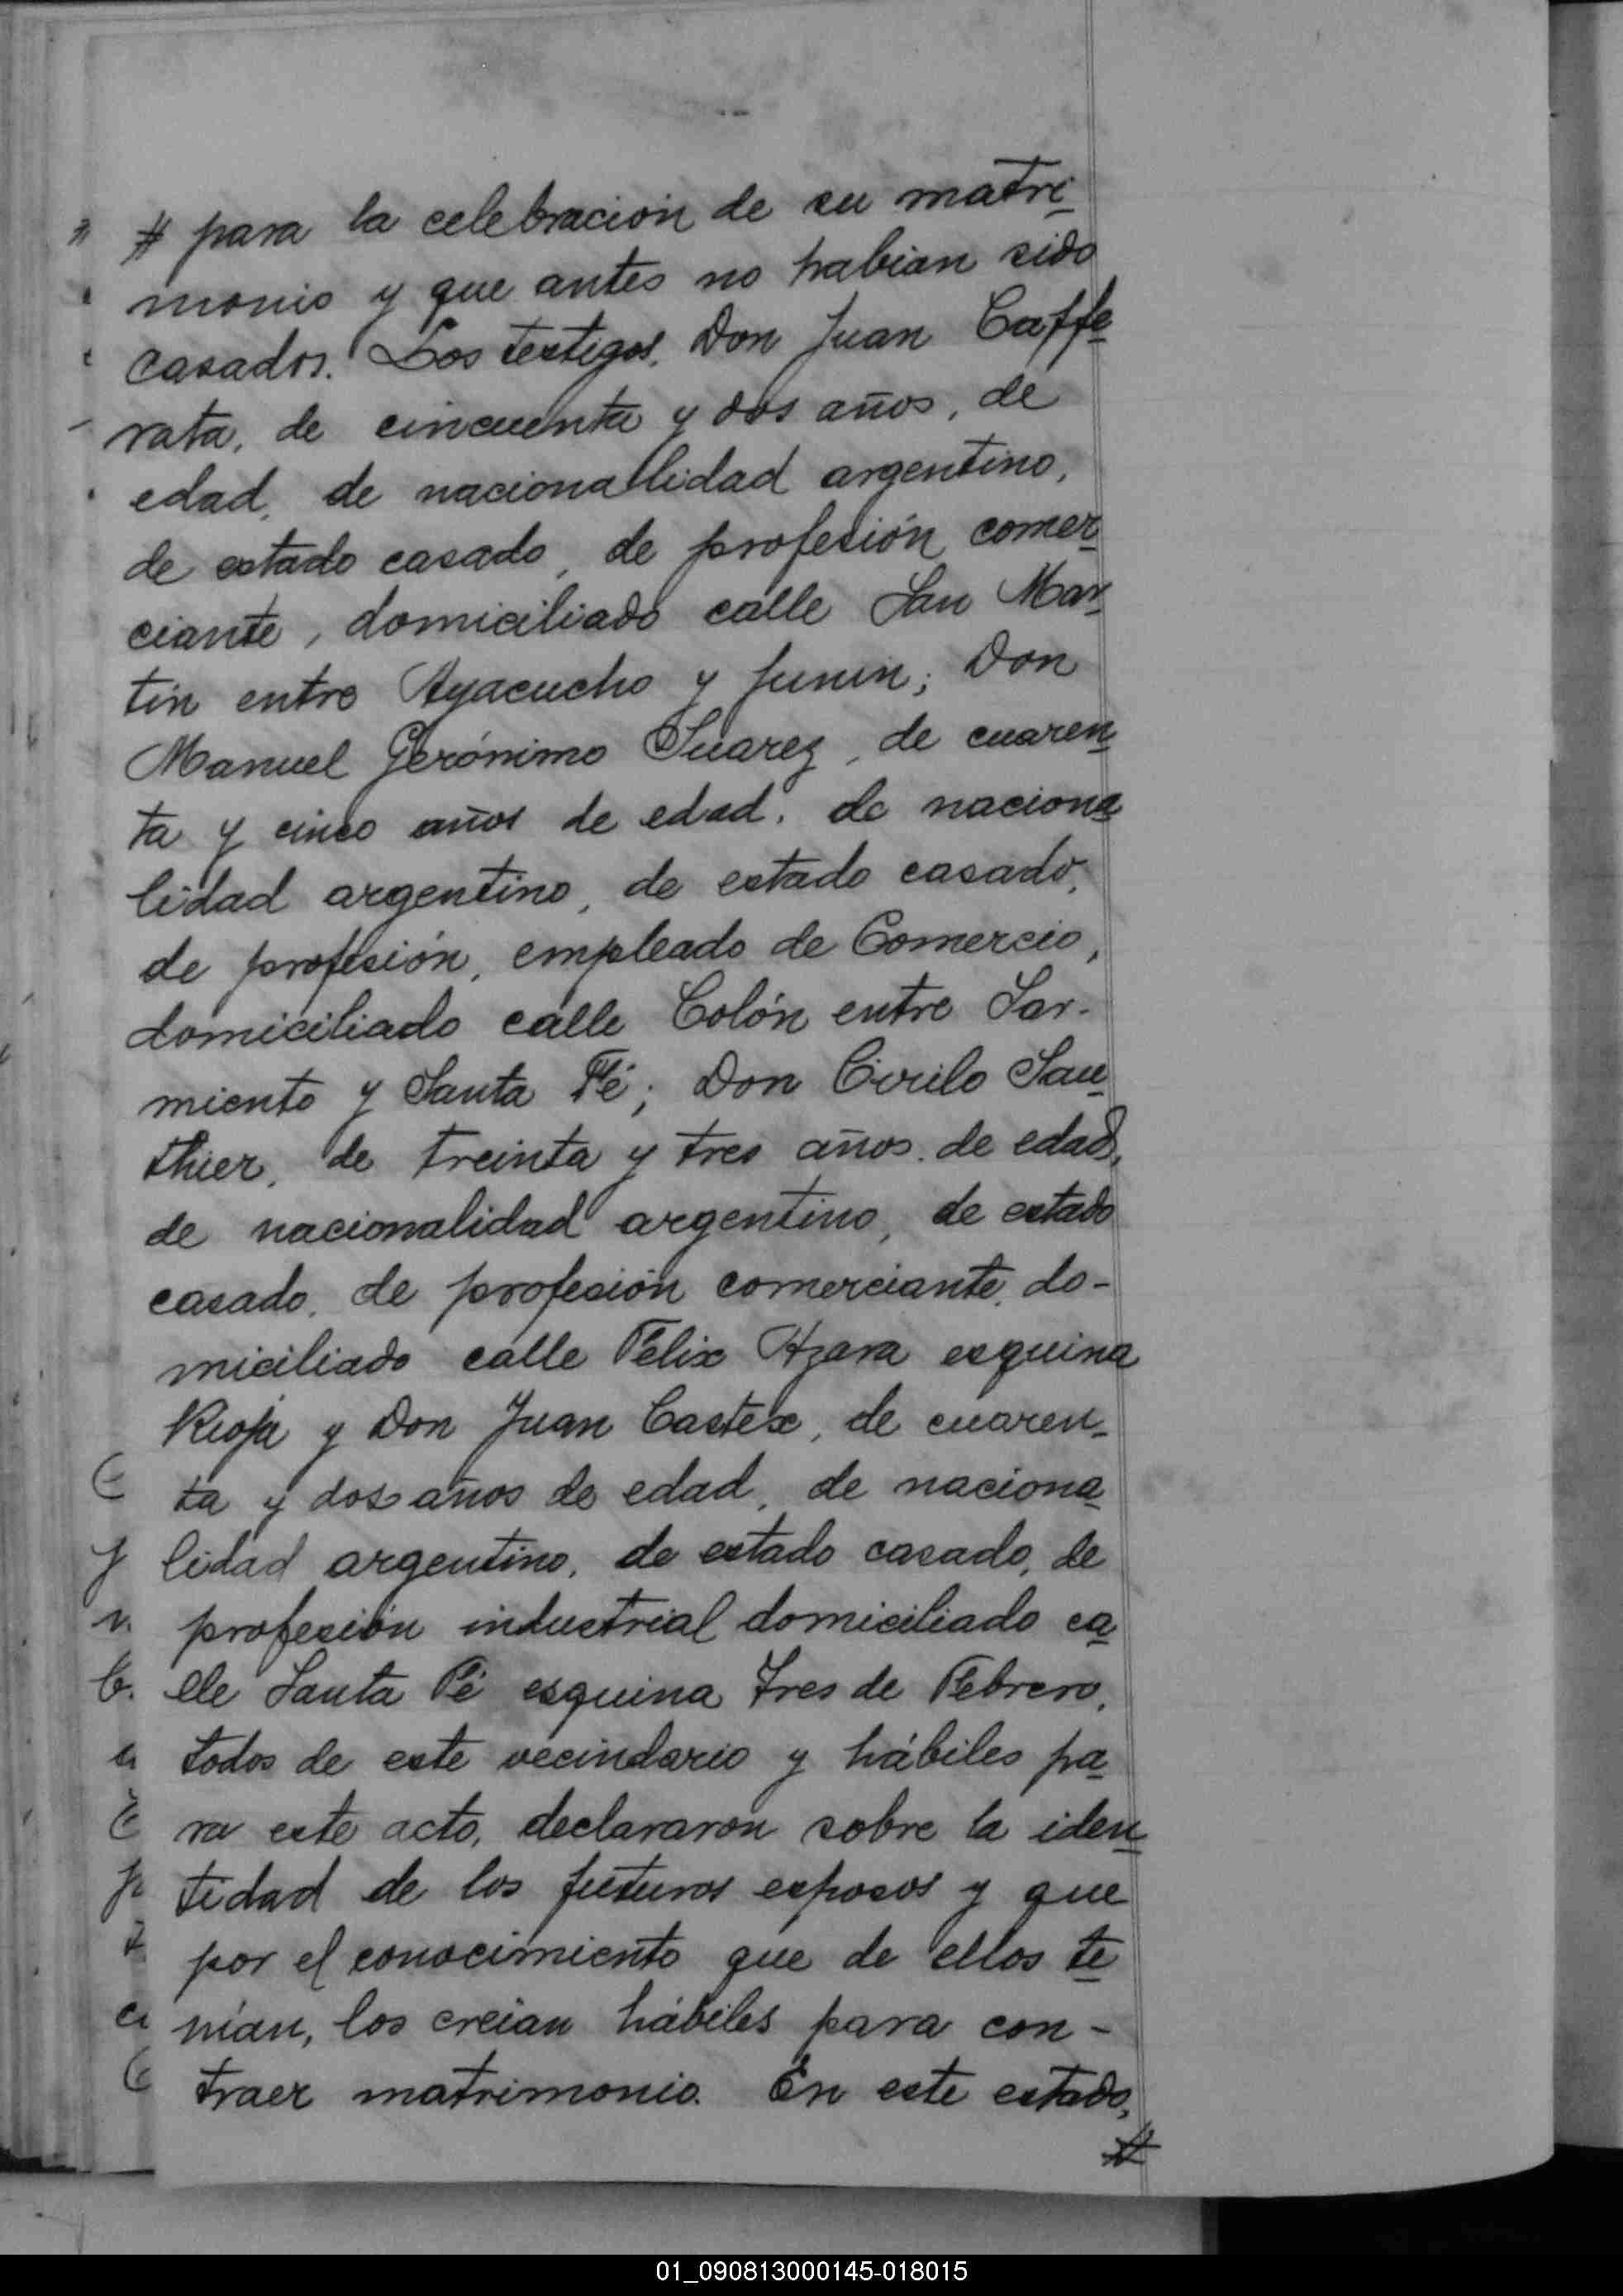 # para la celebración de su matri-
monio y que antes no habian sido
casados. Los testigos, Don Juan Caffe-
rata, de cincuenta y dos años, de
edad, de nacionalidad argentino,
de estado casado, de profesión comer-
ciante, domiciliado calle San Mar-
tin entre Ayacucho y Junin; Don
Manuel Gerónimo Suarez, de cuaren-
ta y cinco años de edad, de naciona-
lidad argentino, de estado casado,
de profesión, empleado de Comercio,
domiciliado calle Colón entre Sar-
miento y Santa Fé; Don Cirilo Sau-
thier, de treinta y tres años de edad,
de nacionalidad argentino, de estado
casado, de profesión comerciante, do-
miciliado calle Felix Azara esquina
Rioja y Don Juan Castex, de cuaren-
ta y dos años de edad, de naciona-
lidad argentino, de estado casado, de
profesión industrial domiciliado ca-
lle Santa Fé esquina Tres de Febrero,
todos de este vecindario y hábiles pa-
ra este acto, declararon sobre la iden-
tidad de los futuros esposos y que
por el conocimiento que de ellos te-
nían, los creían hábiles para con-
traer matrimonio. En este estado,
#
01_090813000145-018015